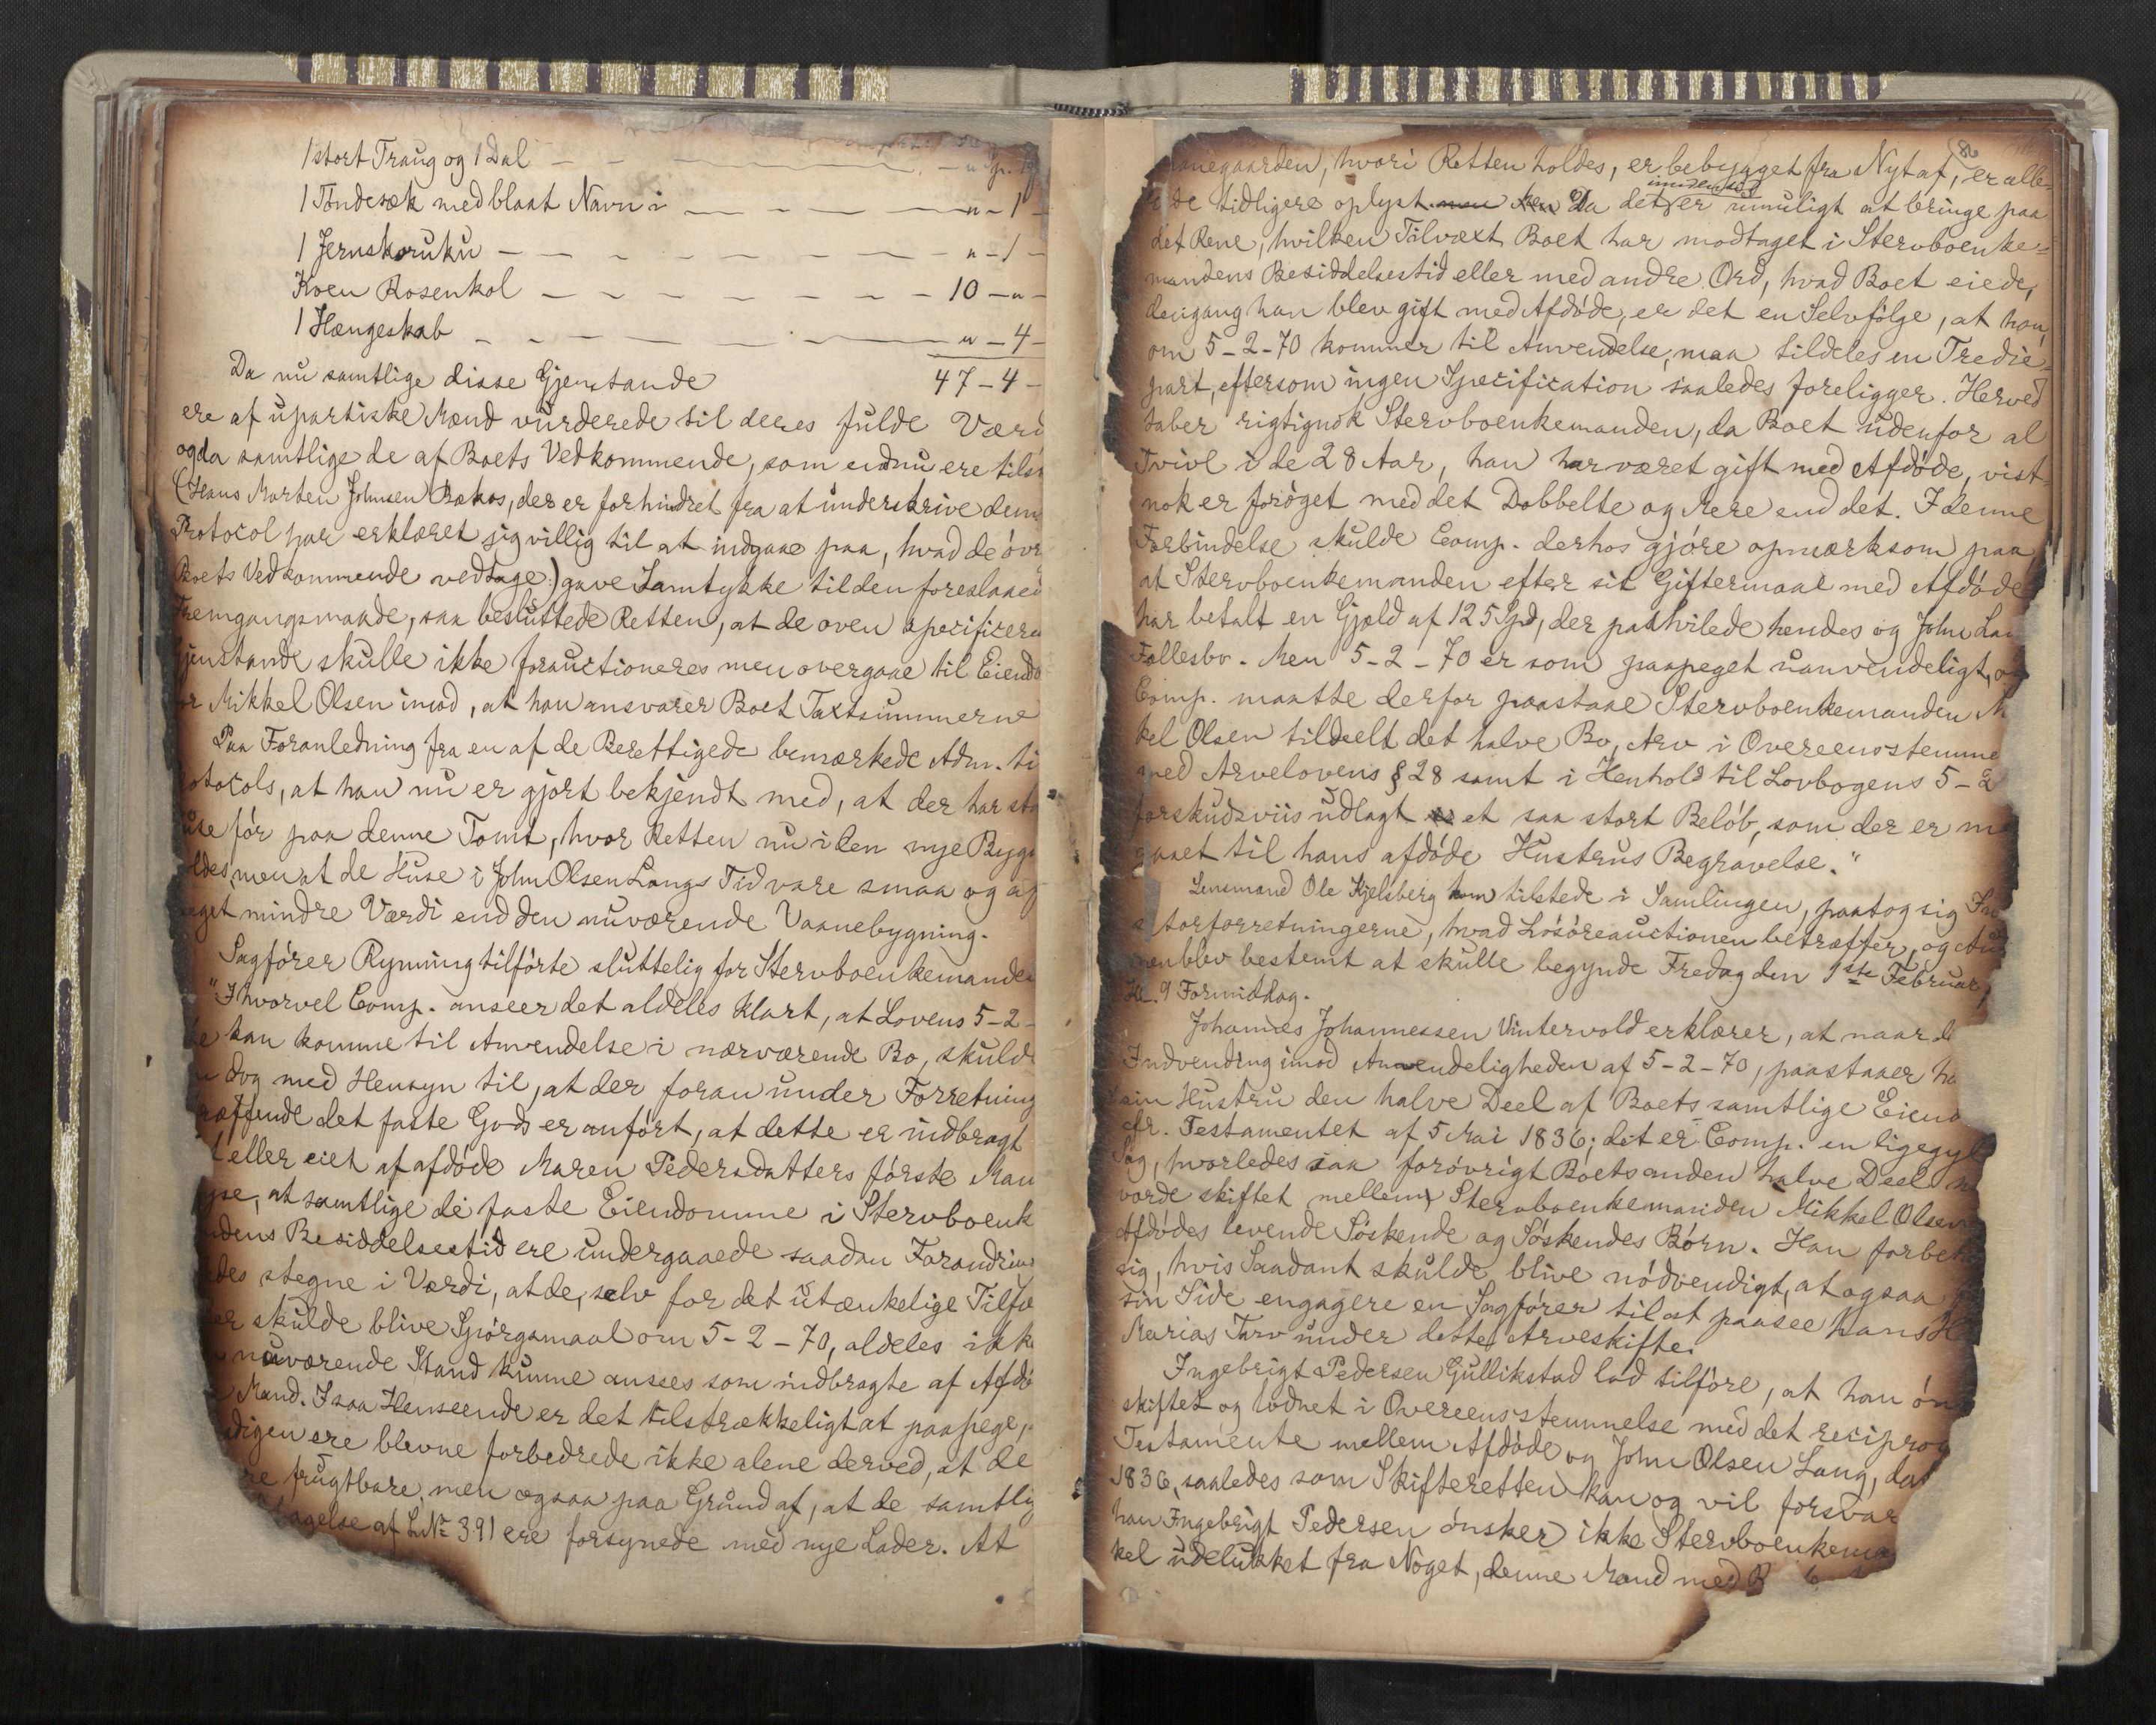 1 stort Traug og 1 Dal — — — — " Sp.
1 Töndesæk med blaat Navn i — — — — " - 1 -
1 Jernskoruku — — — — " - 1 -
Koen Rosenkol — — — — 10 - " -
1 Hængeskab — — — — " - 4 -
Da nu samtlige disse Gjenstande 47 - 4 -
ere af upartiske Mænd vurderede til deres fulde Værd
og da samtlige de af Boets Vedkommende, som endnu ere tils
(Hans Morten Johnsen Rakos, der er forhindret fra at underskrive denne
Protocol har erklæret sig villig til at indgaae paa, hvad de övr
Boets Vedkommende vedtage) gave Samtykke til den foreslaaed
Fremgangsmaade, saa besluttede Retten, at de oven specificere
jenstande skulle ikke forauctioneres men overgaae til Eiendo
or Mikkel Olsen imod, at han ansvarer Boet Taxtsummerne
Paa Foranledning fra en af de Berettigede bemærkede Adm. ti
otocols, at han nu er gjort bekjendt med, at der har sta
use för paa denne Tomt, hvor Retten nu i den nye Bygn
ldes, men at de Huse i John Olsen Langs Tid vare smaa og af
eget mindre Værdi end den nuværende Vaanebygning.
Sagförer Rynning tilförte sluttelig for Stervboenkemande
"Ihvorvel Comp. anseer det aldeles klart, at Lovens 5-2-
e kan komme til Anvendelse i nærværende Bo, skuld
dog med Hensyn til, at der foran under Forretning
ræffende det faste Gods er anfört, at dette er indbragt
t eller eiet af afdöde Maren Pedersdatters förste Man
yse, at samtlige de faste Eiendomme i Stervboenk
ndens Besiddelsestid ere undergaaede saadan Forandrin
des stegne i Værdi, at de, selv for det utænkelige Tilfæ
er skulde blive Spörgsmaal om 5-2-70, aldeles ikk
nuværende Stand kunne ansees som indbragte af Afdö
Mand. I saa Henseende er det tilstrækkeligt at paapege,
digen ere blevne forbedrede ikke alene derved, at de
re frugtbare, men ogsaa paa Grund af, at de samtlig
tagelse af LNo 391 ere forsynede med nye Lader. At
86
aanegaarden, hvori Retten holdes, er bebygget fra Nyt af, er alle-
imidlertid
rede tidligere oplyst. men Men Da det er umuligt at bringe paa
det Rene, hvilken Tilvæxt Boet har modtaget i Stervboenke-
mandens Besiddelsestid eller med andre Ord, hvad Boet eiede,
dengang han blev gift med Afdöde, er det en Selvfölge, at han,
om 5-2-70 kommer til Anvendelse, maa tildeles en Tredie-
part, eftersom ingen Specification saaledes foreligger. Herved
taber rigtignok Stervboenkemanden, da Boet udenfor al
Tvivl i de 28 Aar, han har været gift med Afdöde, vist-
nok er foröget med det Dobbelte og Mere end det. I denne
Forbindelse skulde Comp. derhos gjöre opmærksom paa,
at Stervboenkemanden efter sit Giftermaal med Afdöde
har betalt en Gjæld af 125 Spd, der paahvilede hendes og John Lan
Fællesbo. Men 5-2-70 er som paapeget uanvendeligt, og
Comp. maatte derfor paastaae Stervboenkemanden M
kel Olsen tildeelt det halve Bo, Arv i Overeensstemme
med Arvelovens § 28 samt i Henhold til Lovbogens 5-2
forskudsviis udlagt et saa stort Belöb, som der er m
gaaet til hans afdöde Hustrus Begravelse."
Lensmand Ole Kjelsberg kom tilstede i Samlingen, paatog sig In
torforretningerne, hvad Lösöreauctionen betræffer, og Au
nen blev bestemt at skulle begynde Fredag den 1ste Februar
Kl. 9 Formiddag.
Johannes Johannessen Vintervold erklærer, at naar de
Indvending imod Anvendeligheden af 5-2-70, paastaaer ha
sin Hustru den halve Deel af Boets samtlige Eiend
cfr. Testamentet af 5 Mai 1836; det er Comp. en ligegyl
Sag, hvorledes saa forövrigt Boets anden halve Deel m
vorde skiftet mellem Stervboenkemanden Mikkel Olsen
Afdödes levende Söskende og Söskendes Börn. Han forbeh
sig, hvis Saadant skulde blive nödvendigt, at ogsaa
sin Side engagere en Sagförer til at paasee hans H
Marias Tarv under dette Arveskifte.
Ingebrigt Pedersen Gullikstad lod tilföre, at han ön
skiftet og lodnet i Overeensstemmelse med det reciprog
Testamente mellem Afdöde og John Olsen Lang, dat
1836, saaledes som Skifteretten kan og vil forsvar
han Ingebrigt Pedersen önsker ikke Stervboenkema
kel udelukket fra Noget, denne Mand med R